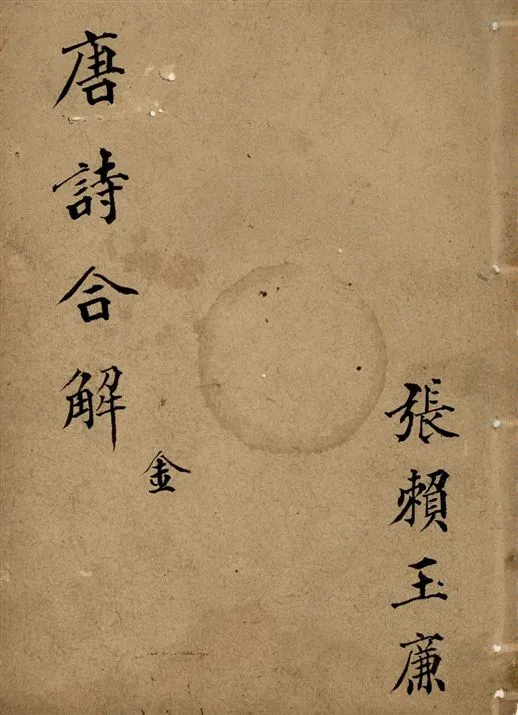 唐詩合解
金
張賴玉廉